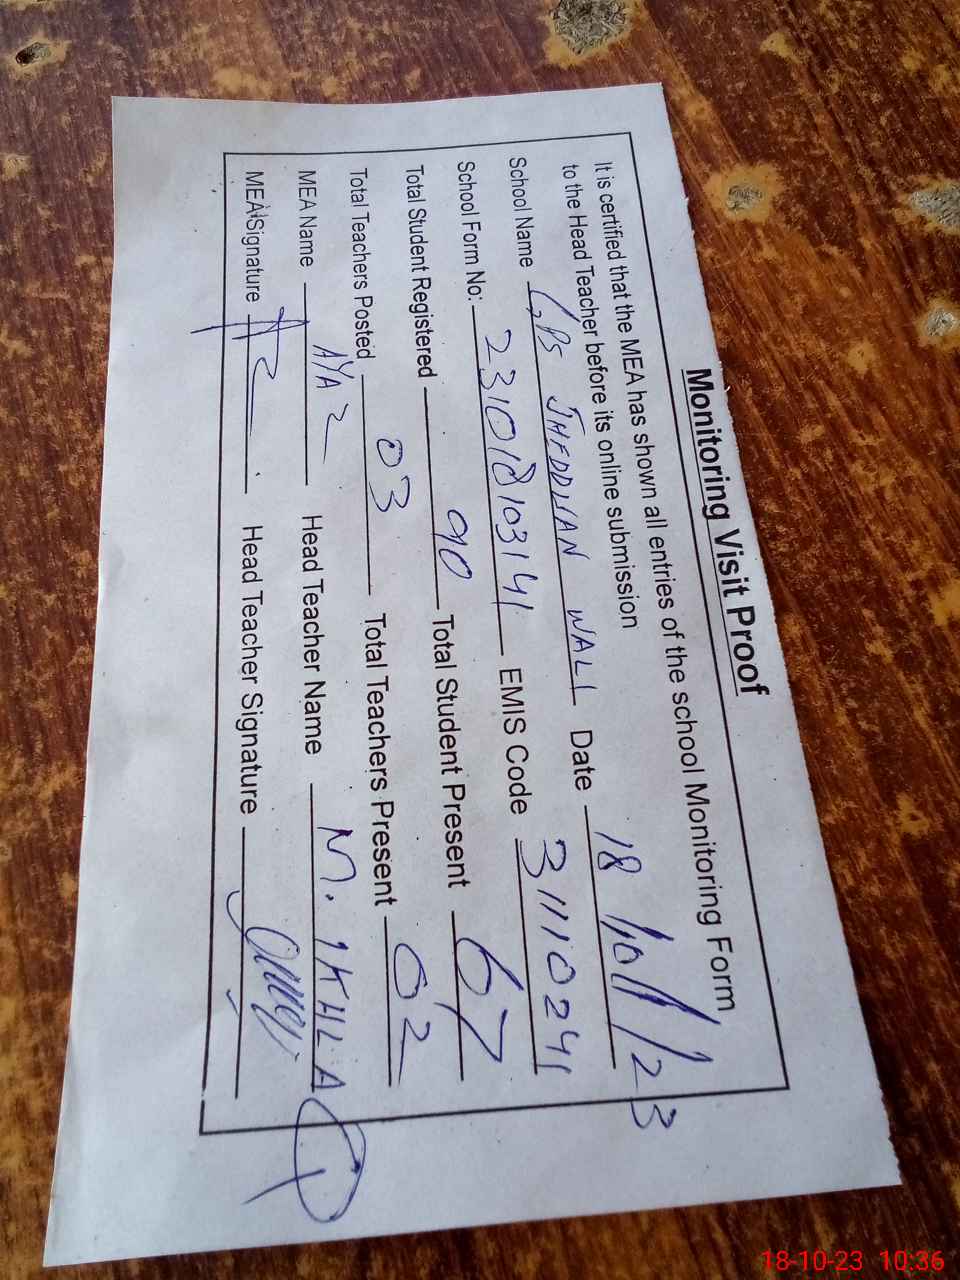 Monitoring Visit Proof
It is certified that the MEA has shown all entries of the school Monitoring Form
to the Head Teacher before its online submission
School Name GPS JHEDDHAN WALI Date 18/10/23
School Form No: 231018103141 EMIS Code 31110241
Total Student Registered 90 Total Student Present 67
Total Teachers Posted 03 Total Teachers Present 02
MEA Name AYAZ Head Teacher Name M. IKHLAQ
MEA Signature Head Teacher Signature
18-10-23 10:36